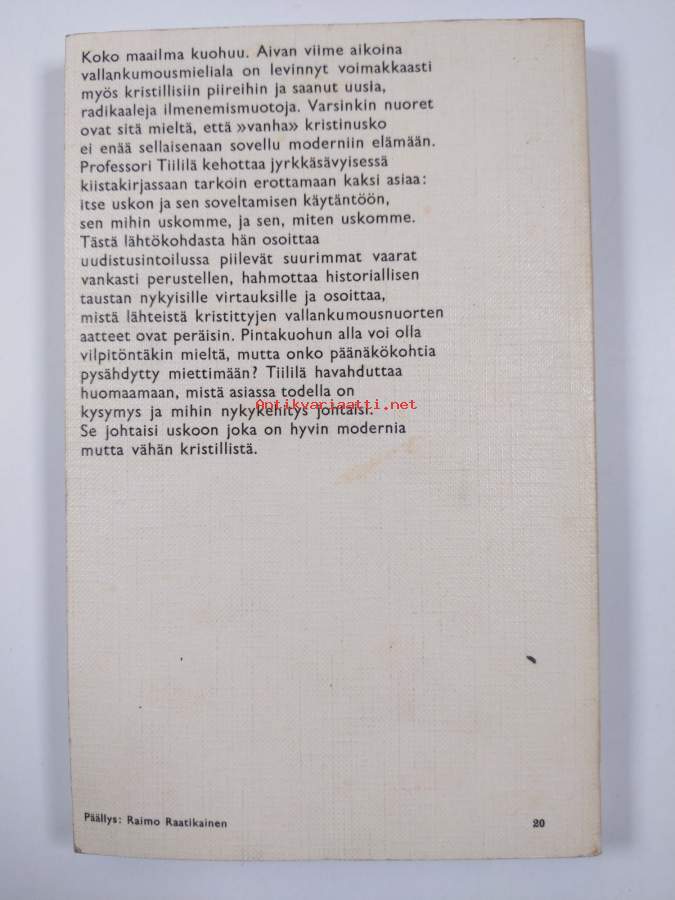 Koko maailma kuohuu. Aivan viime aikoina
vallankumousmieliala on levinnyt voimakkaasti
myös kristillisiin piireihin ja saanut uusia,
radikaaleja ilmenemismuotoja. Varsinkin nuoret
ovat sitä mieltä, että »vanha» kristinusko
ei enää sellaisenaan sovellu moderniin elämään.
Professori Tiililä kehottaa jyrkkäsävyisessä
kiistakirjassaan tarkoin erottamaan kaksi asiaa:
itse uskon ja sen soveltamisen käytäntöön,
sen mihin uskomme, ja sen, miten uskomme.
Tästä lähtökohdasta hän osoittaa
uudistusintoilussa piilevät suurimmat vaarat
vankasti perustellen, hahmottaa historiallisen
taustan nykyisille virtauksille ja osoittaa,
mistä lähteistä kristittyjen vallankumousnuorten
aatteet ovat peräisin. Pintakuohun alla voi olla
vilpitöntäkin mieltä, mutta onko päänäkökohtia
pysähdytty miettimään? Tiililä havahduttaa
huomaamaan, mistä asiassa todella on
kysymys ja mihin nykykehitys johtaisi.
Se johtaisi uskoon joka on hyvin modernia
mutta vähän kristillistä.
Antikvariaatti.net
Päällys: Raimo Raatikainen
20